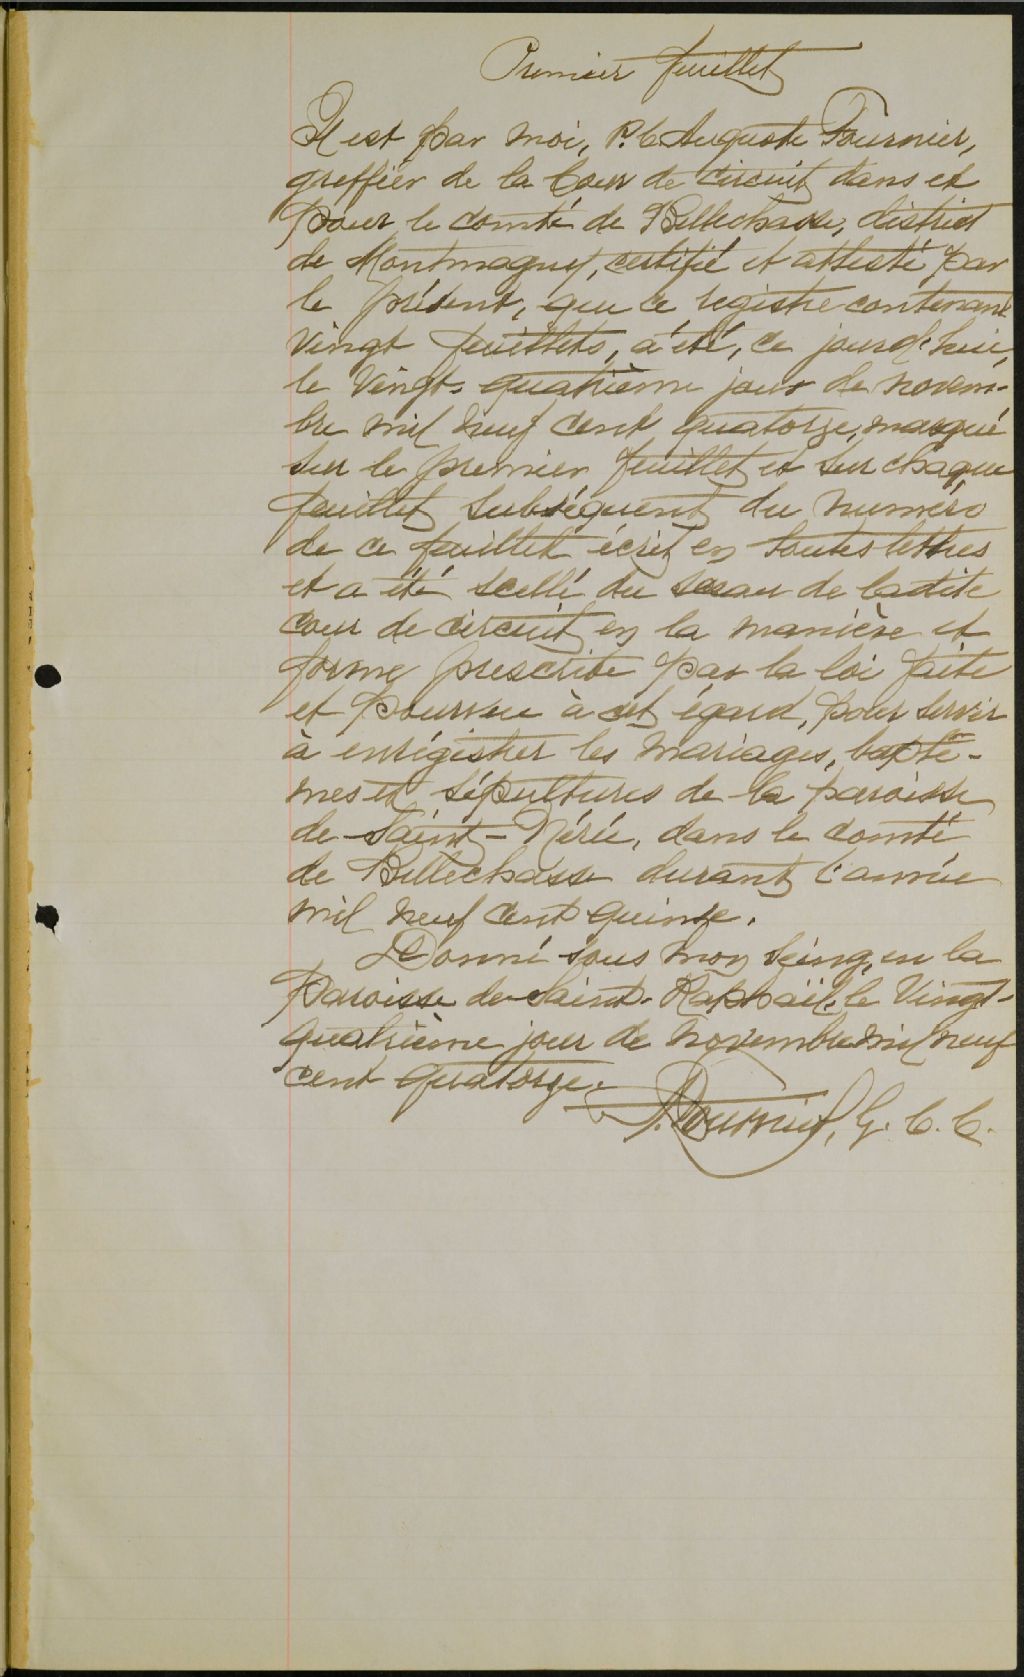 Premier feuillet
Il est par moi, P. C. Auguste Fournier,
greffier de la Cour de circuit dans et
pour le comté de Bellechasse, district
de Montmagny, certifié et attesté par
le présent, que ce registre contenant
vingt feuillets, a été, ce jourd'hui,
le vingt-quatrième jour de novem-
bre mil neuf cent quatorze, marqué
sur le premier feuillet et sur chaque
feuillet subséquent du numéro
de ce feuillet écrit en toutes lettres
et a été scellé du sceau de ladite
cour de circuit en la manière et
forme prescrite par la loi faite
et pourvue à cet égard, pour servir
à enrégistrer les mariages, baptê-
mes et sépultures de la paroisse
de Saint-Nérée, dans le comté
de Bellechasse durant l'année
mil neuf cent quinze.
Donné sous mon seing, en la
paroisse de Saint-Raphaël, le vingt-
quatrième jour de novembre mil neuf
cent quatorze.
A. Fournier, G. C. C.